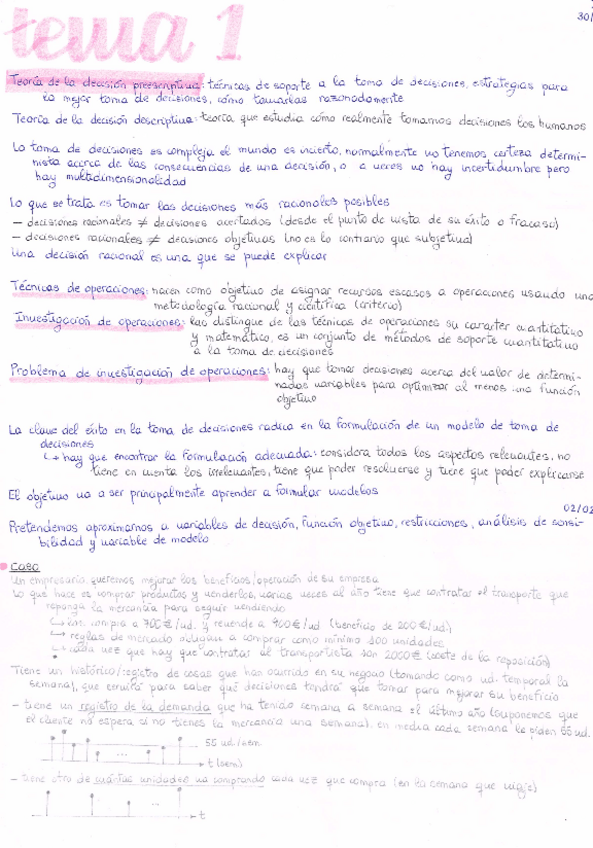 tema 1
30/
Teoría de la decisión preescriptiva: técnicas de soporte a la toma de decisiones, estrategias para
la mejor toma de decisiones, cómo tomarlas razonadamente
Teoría de la decisión descriptiva: teoría que estudia cómo realmente tomamos decisiones los humanos
La toma de decisiones es compleja, el mundo es incierto, normalmente no tenemos certeza determi-
nista acerca de las consecuencias de una decisión, o a veces no hay incertidumbre pero
hay multidimensionalidad
Lo que se trata es tomar las decisiones más racionales posibles
– decisiones racionales ≠ decisiones acertadas (desde el punto de vista de su éxito o fracaso)
– decisiones racionales ≠ decisiones objetivas (no es lo contrario que subjetiva)
Una decisión racional es una que se puede explicar
Técnicas de operaciones: nacen como objetivo de asignar recursos escasos a operaciones usando una
metodología racional y científica (criterio)
Investigación de operaciones: las distingue de las técnicas de operaciones su carácter cuantitativo
y matemático, es un conjunto de métodos de soporte cuantitativo
a la toma de decisiones
Problema de investigación de operaciones: hay que tomar decisiones acerca del valor de determi-
nadas variables para optimizar al menos una función
objetivo
La clave del éxito en la toma de decisiones radica en la formulación de un modelo de toma de
decisiones
↳ hay que encontrar la formulación adecuada: considera todos los aspectos relevantes, no
tiene en cuenta los irrelevantes, tiene que poder resolverse y tiene que poder explicarse
El objetivo va a ser principalmente aprender a formular modelos
02/02
Pretendemos aproximarnos a variables de decisión, función objetivo, restricciones, análisis de sensi-
bilidad y variable de modelo
caso
Un empresario, queremos mejorar los beneficios/operación de su empresa
Lo que hace es comprar productos y venderlos, varias veces al año tiene que contratar el transporte que
reponga la mercancía para seguir vendiendo
compra a 700€/ud. y revende a 900€/ud (beneficio de 200€/ud.)
reglas de mercado obligan a comprar como mínimo 100 unidades
cada vez que hay que contratar al transportista son 2000€ (coste de la reposición)
Tiene un histórico/registro de cosas que han ocurrido en su negocio (tomando como ud. temporal la
semana), que servirá para saber qué decisiones tendrá que tomar para mejorar su beneficio
– tiene un registro de la demanda que ha tenido semana a semana el último año (suponemos que
el cliente no espera si no tienes la mercancía una semana). en media cada semana le piden 55 ud.
55 ud./sem.
t (sem)
– tiene otro de cuántas unidades va comprando cada vez que compra (en la semana que viaje)
t